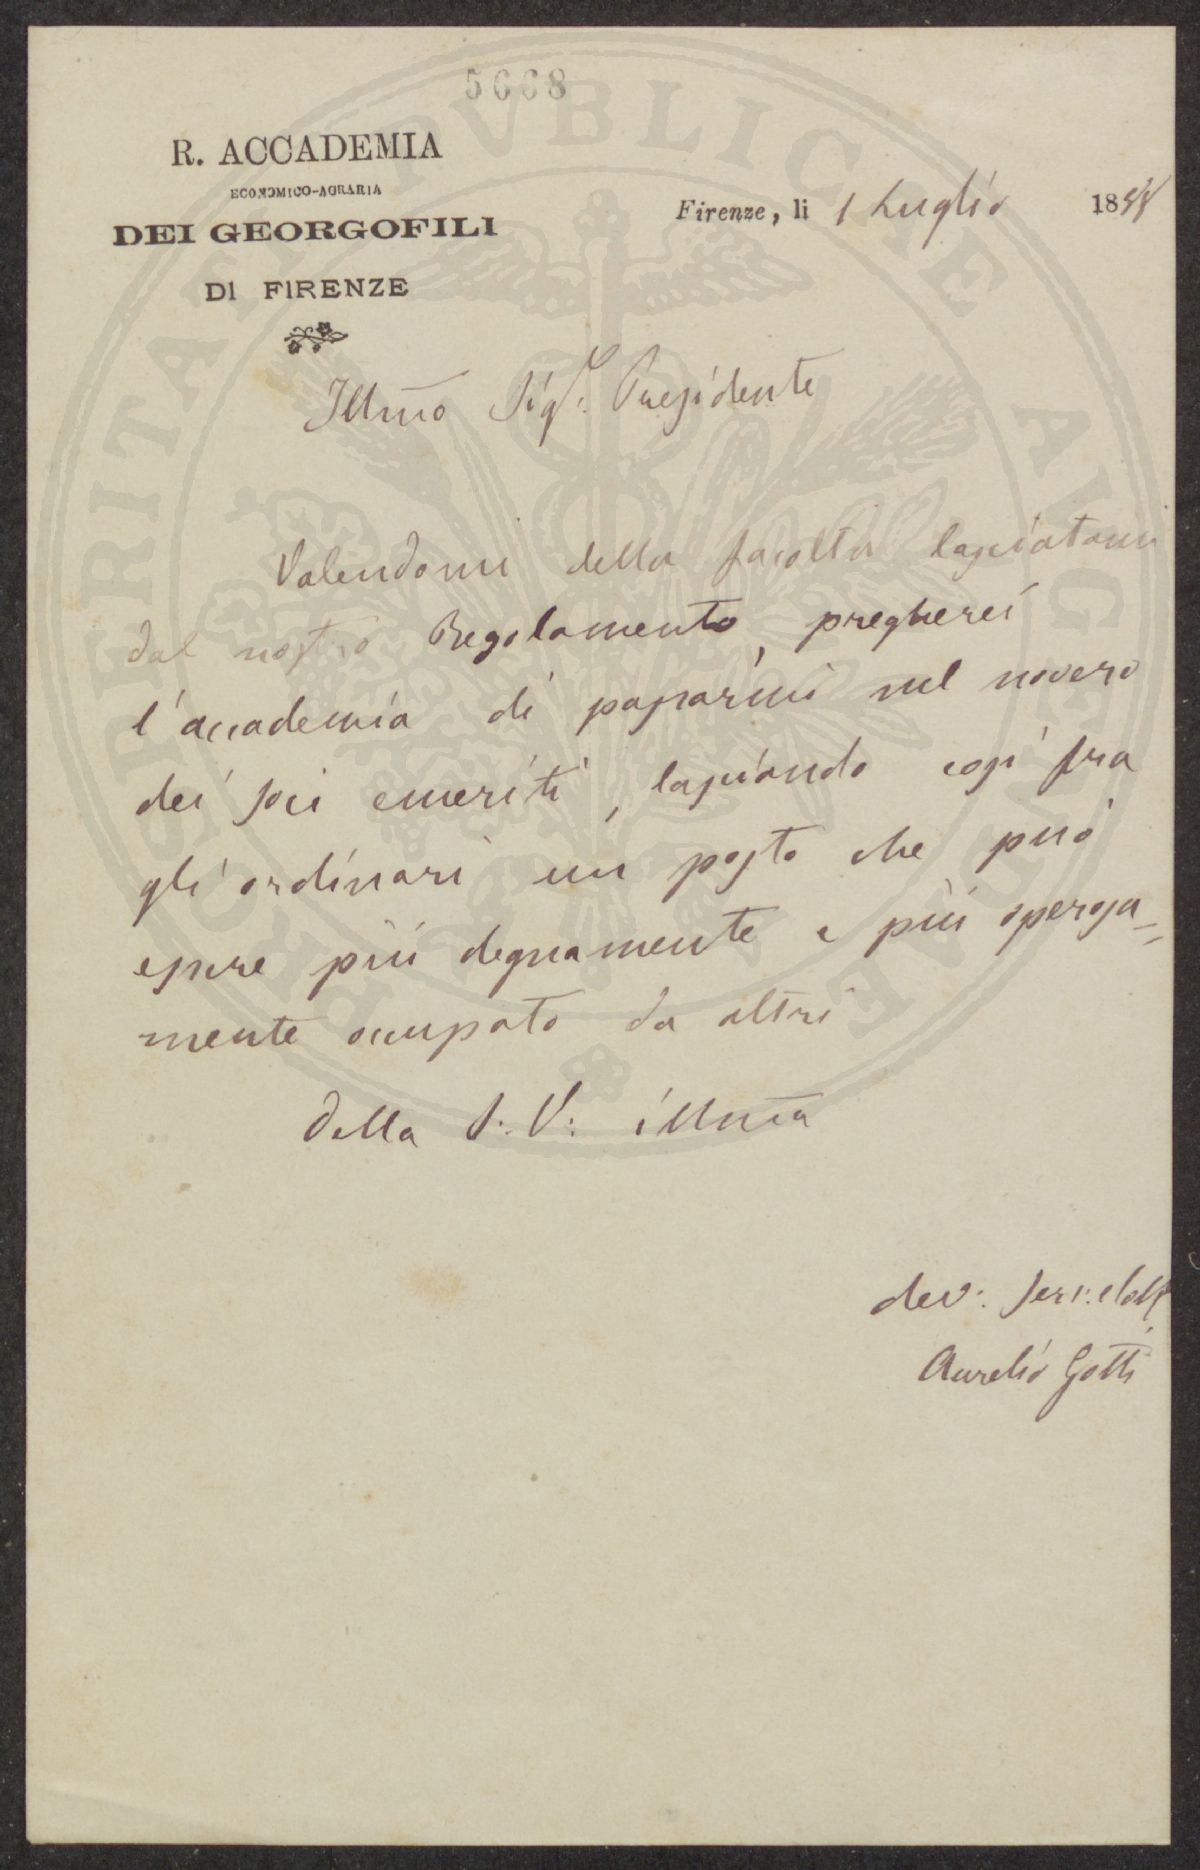 5668
R. ACCADEMIA
ECONOMICO-AGRARIA
DEI GEORGOFILI
DI FIRENZE
Firenze, li 1 Luglio 1888
Illmo Sigr. Presidente
Valendomi della facoltà lasciatami
dal nostro Regolamento, pregherei
l'accademia di passarmi nel novero
dei soci emeriti, lasciando così fra
gli ordinari un posto che può
essere più degnamente e più operosa=
mente occupato da altri
Della S: V: illma
dev:
Aurelio Gotti
PROSPERITATI PVBLICAE AVGENDAE